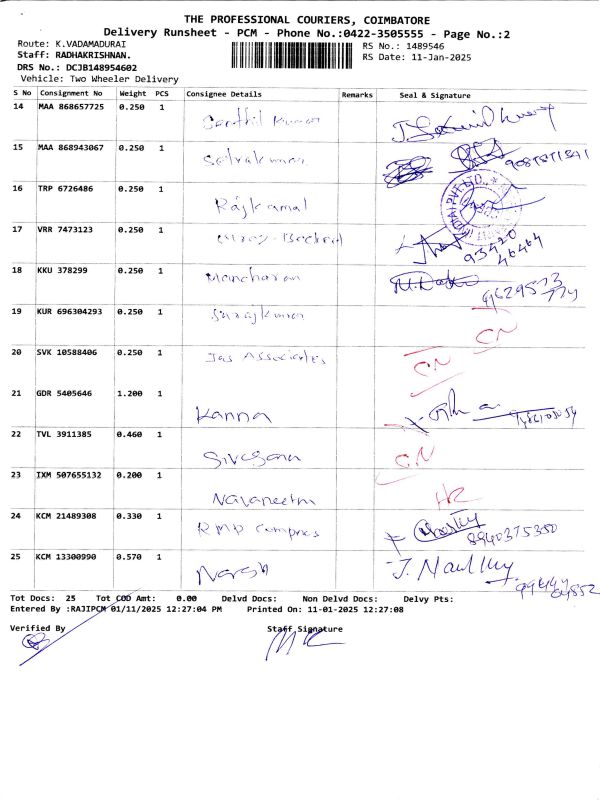 THE PROFESSIONAL COURIERS, COIMBATORE
Delivery Runsheet - PCM - Phone No.:0422-3505555 - Page No.:2
Route: K.VADAMADURAI
RS No.: 1489546
Staff: RADHAKRISHNAN.
RS Date: 11-Jan-2025
DRS No.: DCJB148954602
Vehicle: Two Wheeler Delivery
S No Consignment No Weight PCS Consignee Details Remarks Seal & Signature
14 MAA 868657725 0.250 1
Senthil Kumar
15 MAA 868943067 0.250 1
Selvakumar
16 TRP 6726486 0.250 1
Rajkamal
17 VRR 7473123 0.250 1
93420
46464
18 KKU 378299 0.250 1
Manoharan
19 KUR 696304293 0.250 1
Surajkumar
CN
20 SVK 10588406 0.250 1
Jas Associates
CN
21 GDR 5405646 1.200 1
Kanna
22 TVL 3911385 0.460 1
CN
23 IXM 507655132 0.200 1
Navaneetha
24 KCM 21489308 0.330 1
RMP
8940375350
25 KCM 13300990 0.570 1
Naresh
Tot Docs: 25 Tot COD Amt: 0.00 Delvd Docs: Non Delvd Docs: Delvy Pts:
Entered By :RAJIPCM 01/11/2025 12:27:04 PM Printed On: 11-01-2025 12:27:08
Verified By
Staff Signature